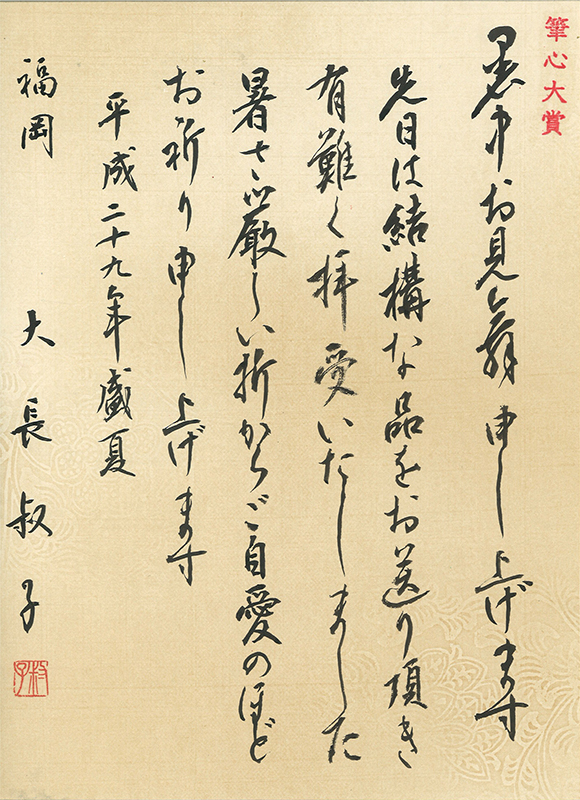 筆心大賞
暑中お見舞申し上げます
先日は結構な品をお送り頂き
有難く拝受いたしました
暑さ厳しい折からご自愛のほど
お祈り申し上げます
平成二十九年盛夏
福岡 大長叔子
叔子